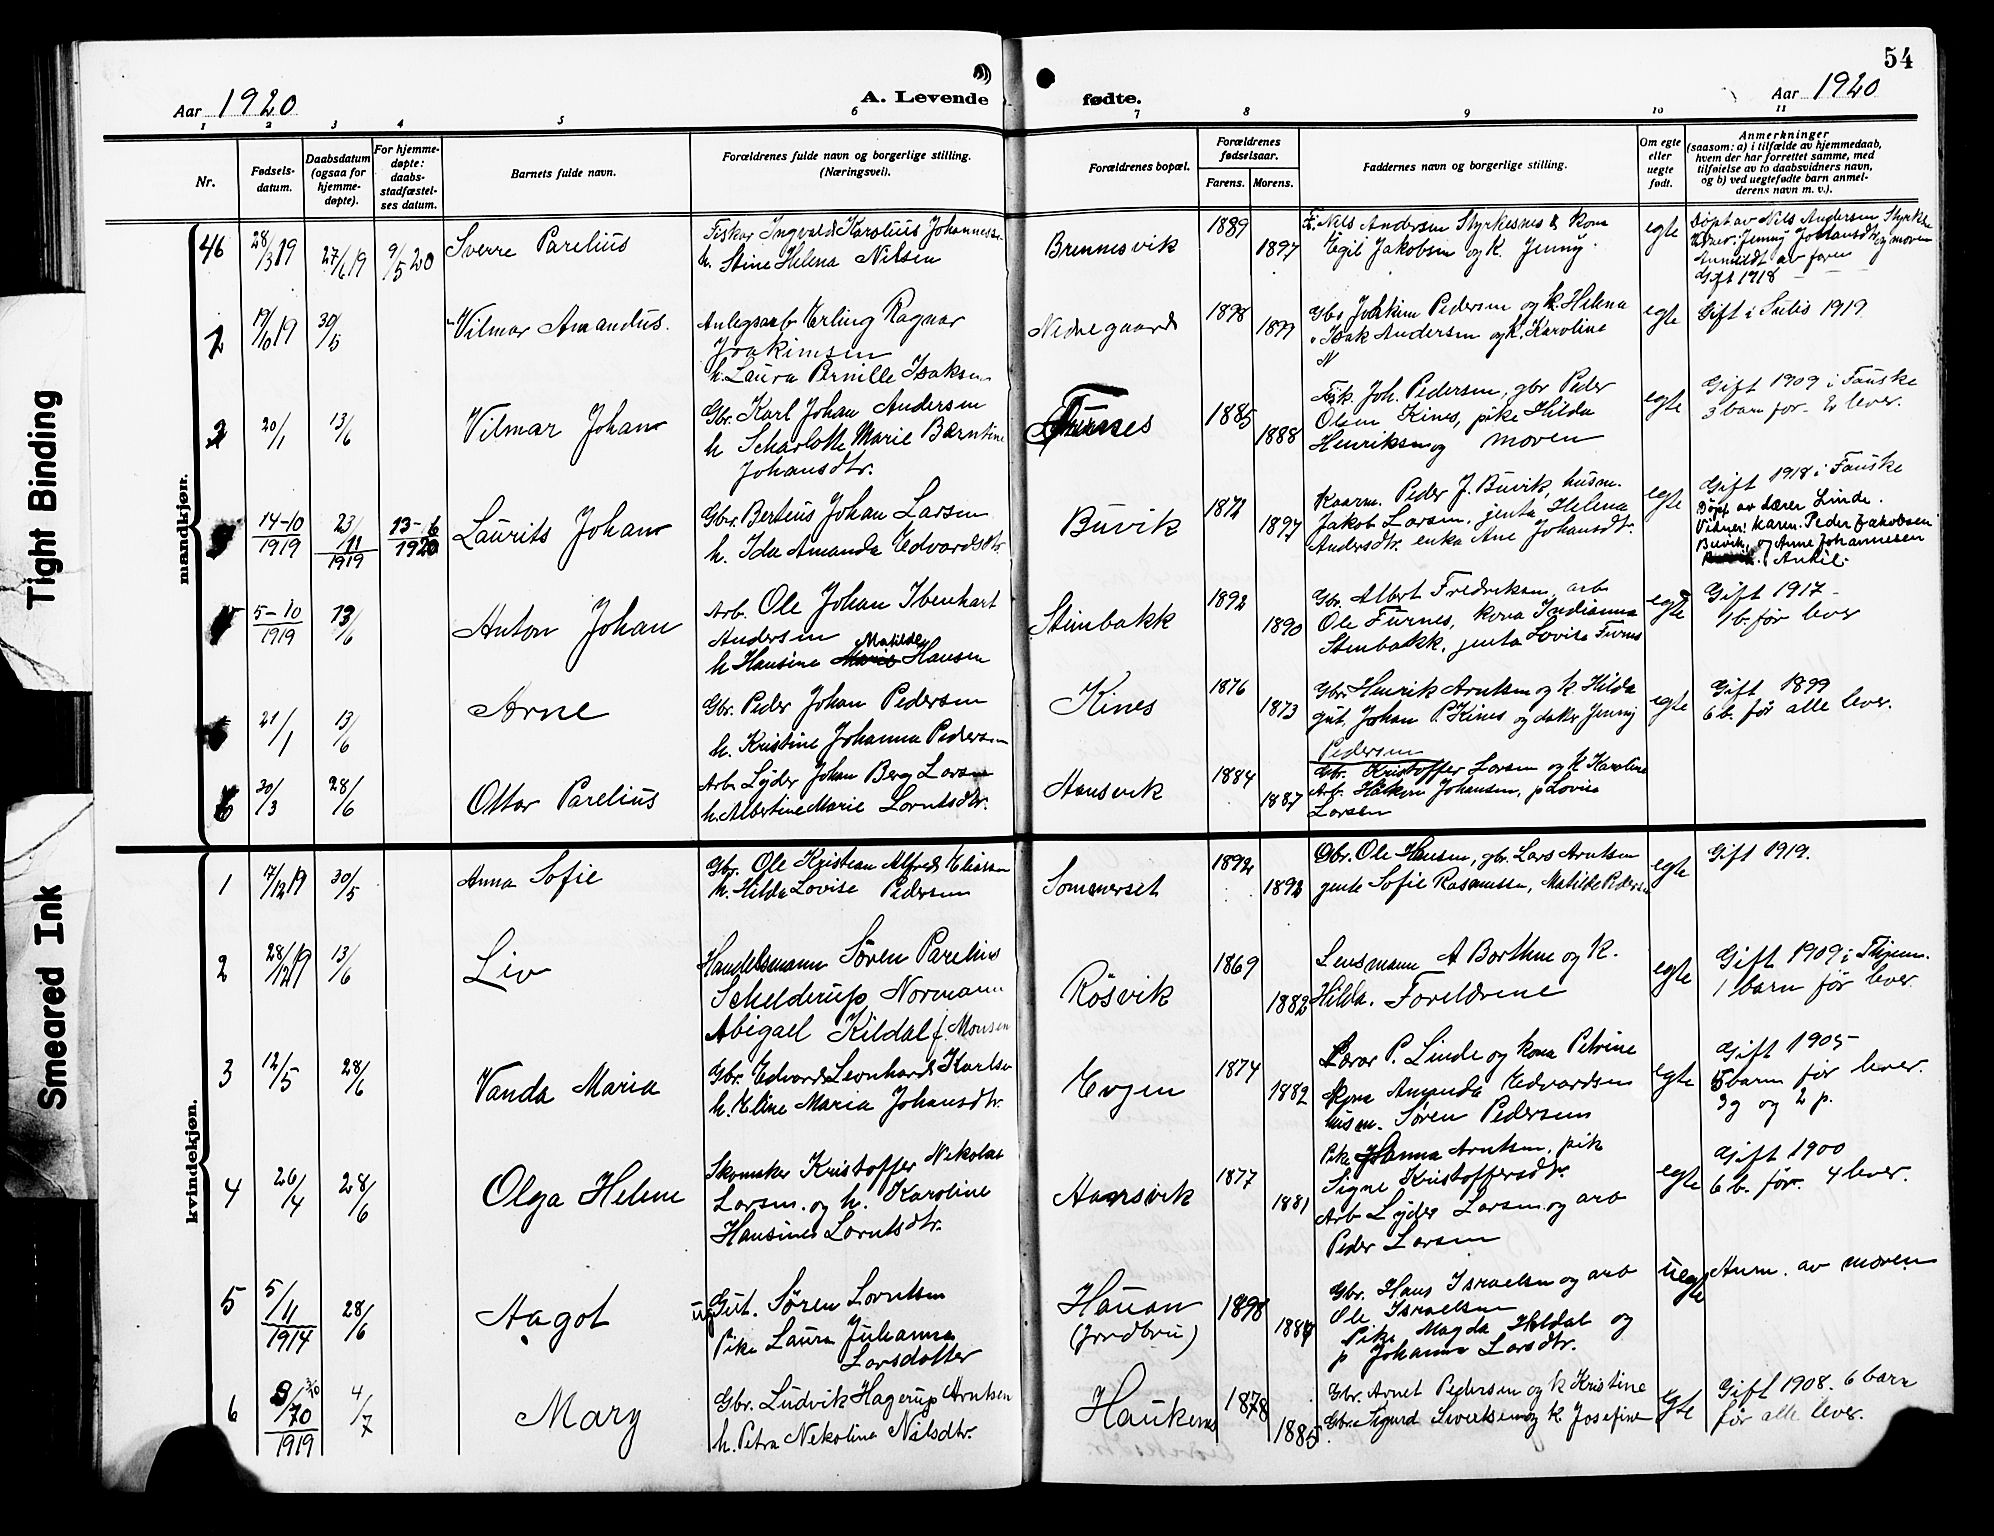 54
Aar 1920
A. Levende
fødte.
Aar 1920
1 2 3 4 5 6 7 8 9 10 11
Nr.
Fødsels-
datum.
Daabsdatum
(ogsaa for
hjemme-
døpte).
For hjemme-
døpte:
daabs-
stadfæstel-
ses datum.
Barnets fulde navn.
Forældrenes fulde navn og borgerlige stilling.
(Næringsvei).
Forældrenes bopæl.
Forældrenes
fødselsaar.
Farens. Morens.
Faddernes navn og borgerlige stilling.
Om egte
eller
uegte
født.
Anmerkninger
(saasom: a) i tilfælde av hjemmedaab,
hvem der har forrettet samme, med
tilføielse av to daabsvidners navn,
og b) ved uegtefødte barn anmel-
derens navn m. v.).
mandkjøn.
46 28/3 19 27/6 19 9/5 20 Sverre Parelius
Fisker Ingvald Karolius Johannessen
h. Stine Helena Nilsen
Brennesvik 1889 1897
F. Nils Andersen Styrkesnes & kona
Egil Jakobsen og K. Jenny
egte
Døpt av Nils Andersen Styrke
Vidner: Jenny Johansdtr og moren
Anmeldt av faren
Gift 1918
19/6 19 30/5 Vilmar Amandus.
Anlegsarb Erling Ragnar
Joakimsen
h. Laura Pernille Isaksen
Nedregaard 1898 1899
Gbr Joakim Pedersen og k. Helena
" Isak Andersen og K. Karoline
N
egte
Gift i Sulis 1919
2 20/1 13/6 Vilmar Johan
Gbr. Karl Johan Andersen
h Scharlotte Marie Berntine
Johansdtr.
Furnes 1885 1888
Fisk. Joh. Pedersen, gbr Peder
Olsen Kines, pike Hilda
Henriksen og moren
egte
Gift 1909 i Fauske
3 barn før - 2 lever.
14-10/1919 23/11/1919 13-6/1920 Laurits Johan
Gbr. Berteus Johan Larsen
h. Ida Amanda Edvardsdtr.
Buvik 1872 1897
Kaarm. Peder J. Buvik, husm.
Jakob Larsen, jenta Helena
Andersdtr. enka Ane Johansdtr.
egte
Gift 1918 i Fauske
Døpt av lærer Linde.
Vidner: karm. Peder Jakobsen
Buvik, og Anne Johannesen
Ankil.
5-10/1919 13/6 Anton Johan
Arb. Ole Johan Ibenhart
Andersen
Matilde
h Hansine Marie Hansen
Steinbakk 1892 1890
Gbr. Albert Fredriksen, arb
Ole Furnes, kona Indianna
Stenbakk, jenta Lovise Furnes
egte
Gift 1917 -
1 b. før lever
21/1 13/6 Arne
Gbr. Peder Johan Pedersen
h. Kristine Johanna Pedersen
Kines 1876 1873
Gbr. Henrik Arntsen og k Hilda
gut. Johan P. Kines og dtr Jenny
Pedersen
egte
Gift 1899
6 b. før alle lever.
6 30/3 28/6 Ottar Parelius
Arb. Lyder Johan Berg Larsen
h. Albertine Marie Lorntsdtr.
Hansvik 1884 1887
Gbr. Kristoffer Larsen og K Karoline
Arb. Håkon Johansen, p Lovise
Larsen
kvindekjøn.
1 17/12 19 30/5 Anna Sofie
Gbr. Ole Kristian Alfred Eliasen
h. Hilda Lovise Pedersen
Sommerset 1892 1892
Gbr. Ole Hansen, gbr. Lars Arntsen
jente Sofie Rasmussen, Matilde Pedersen
egte
Gift 1919.
2 28/12 19 13/6 Liv
Handelsmann Søren Parelius
Schelderup Normann
Abigael Kildal f. Monsen
Røsvik 1869 1882
Lensmann A Borthne og K.
Hilda. Foreldrene
egte
Gift 1909 i
1 barn før lever.
3 12/5 28/6 Vanda Maria
Gbr. Edvard Leonhard Karlsen
h. Eline Maria Johansdtr.
Evjen 1874 1882
Lærer P. Linde og kona Petrine
kona Amanda Edvardsen
husm. Søren Pedersen
egte
Gift 1905
5 barn før lever.
3 g og 2 p.
4 26/4 28/6 Olga Helene
Skomaker Kristoffer Nikolai
Larsen. og h. Karoline
Hansine Lorntsdtr.
Hansvik 1877 1881
Pike Hanna Arntsen, pik
Signe Kristoffersdtr.
Arb Lyder Larsen og arb
Peder Larsen
egte
Gift 1900
6 b. før. 4 lever.
5 5/11/1914 28/6 Aagot
ug Gut. Søren Lorntsen
Pike Laura Juhanna
Larsdatter
Hauan
(Jordbru) 1898 1884
Gbr. Hans Israelsen og arb
Ole Israelsen
Pike Magda Hildal og
p Johanna Larsdtr.
uegte
Anm. av moren
6 1919 4/7 Mary
Gbr. Ludvik Hagerup Arntsen
h. Petra Nekolina Nilsdtr.
Haukenes 1878 1885
Gbr. Arnet Pedersen og k Kristine
Gbr. Sigurd Sivertsen og k. Josefine
egte
Gift 1908. 6 barn
før alle lever.
Tight Binding
Smeared Ink